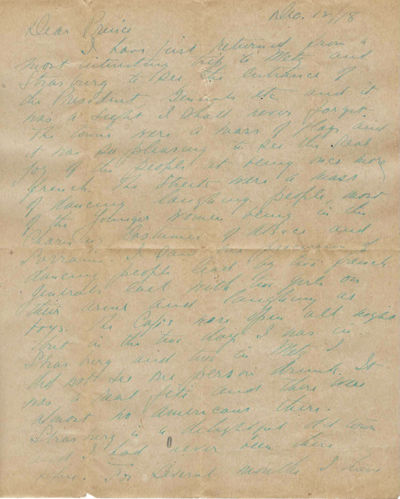 Dec. 12/18
Dear Prince
I have just returned from a
most interesting trip to Metz and
Strasburg to see the entrance of
the President Generals etc and it
was a sight I shall never forget.
The towns were a mass of flags and
it was so pleasing to see the great
joy of the people at being once more
french. The Streets were a mass
of dancing laughing people most
of the younger women being in the
charming Costumes of Alsace and
Lorraine. I saw
dancing people lead by two french
Generals each with two girls on
their arms and laughing as
boys. The Cafes were open all night
but in the two days I was in
Strasburg and two in Metz I
did not see one person drunk. It
was a great fete and there were
almost no Americans there.
Strasburg is a delightful old town
and I had never been there
before. For several months I have